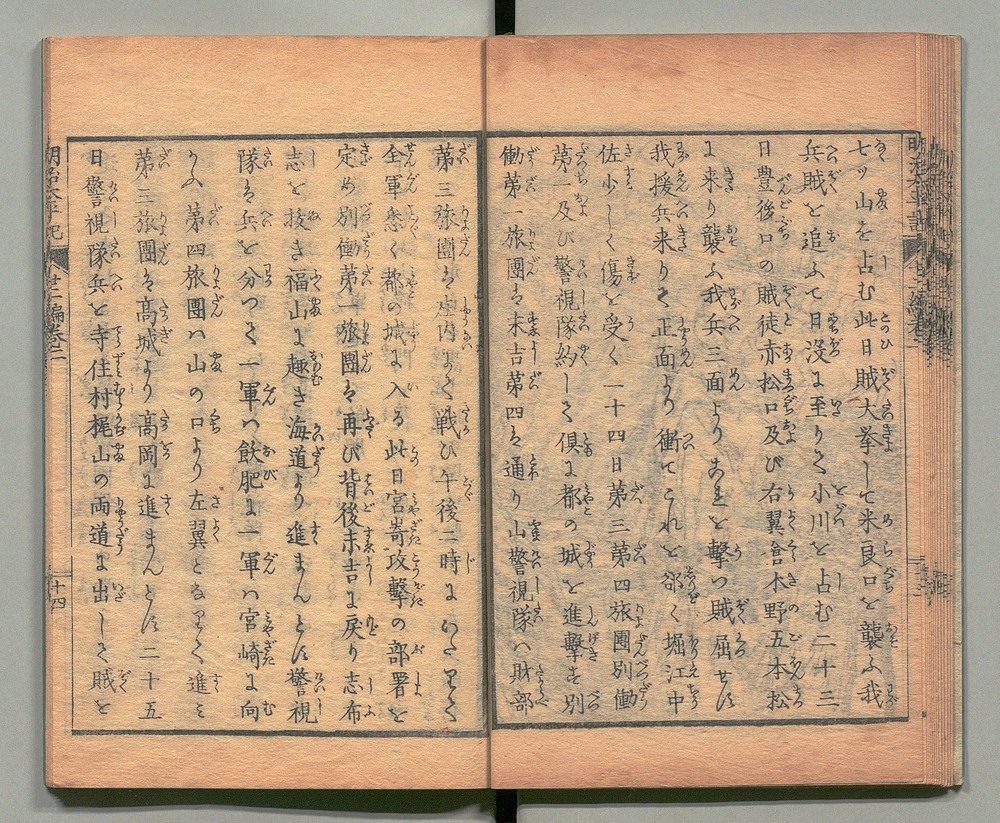 七ッ山を占む此日賊大挙して米良口を襲ふ我
兵賊を追ふて日没に至りて小川を占む二十三
日豊後口の賊徒赤松口及び右翼舎木野五本松
に来り襲ふ我兵三面よりこれを撃つ賊屈せす
我援兵来りて正面より衝てこれを郤く堀江中
佐少しく傷を受く一十四日第三第四旅團別働
第一及び警視隊約して倶に都の城を進撃す別
働第一旅團は末吉第四は通り山警視隊ハ財部
第三旅團は庄内にて戦ひ午後二時にいたりて
全軍悉く都の城に入る此日宮崎攻撃の部署を
定め別働第一旅團は再び背後末吉に戻り志布
志を抜き福山に趣き海道より進まんとす警視
隊は兵を分つて一軍ハ飫肥に一軍ハ宮崎に向
ひ第四旅團ハ山の口より左翼となりて進み
第三旅團は高城より高岡に進まんとす二十五
日警視隊兵を寺住村梶山の両道に出して賊を
明治太平記
廿二編巻二
十四